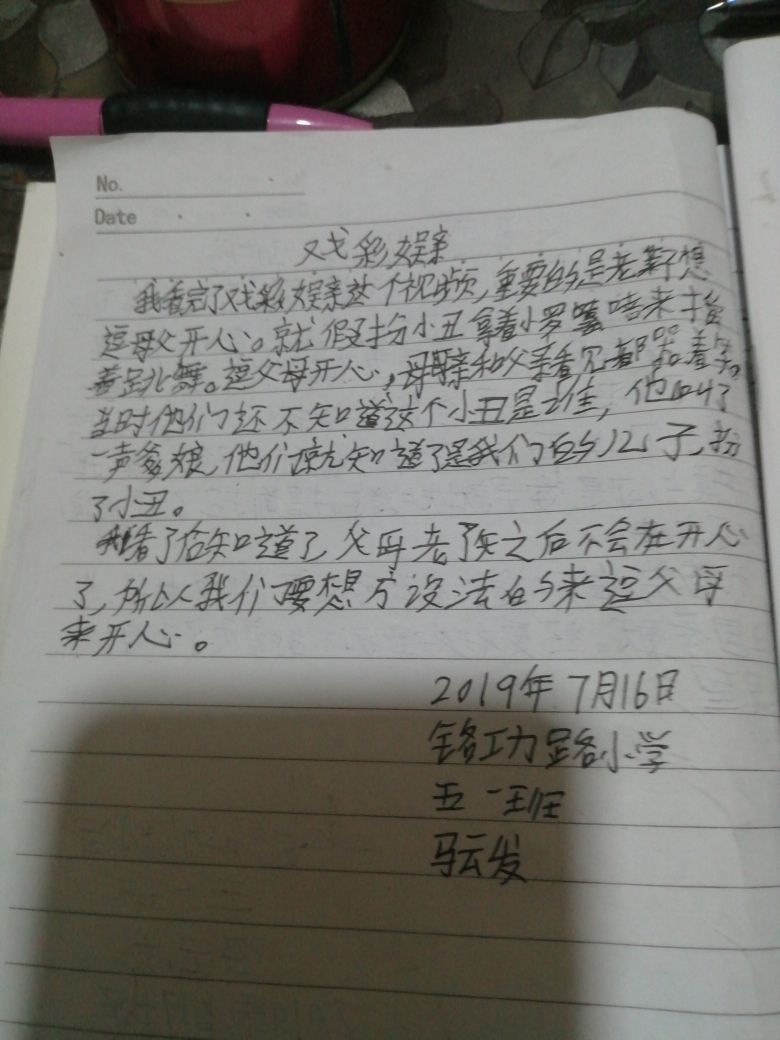 No.
Date
戏彩娱亲
我看完了戏彩娱亲这个视频,重要的是老莱子想
逗母父开心。就假扮小丑拿着小罗
着跳舞。逗父母开心,母亲和父亲看见都哭着笑。
当时他们还不知道这个小丑是谁,他叫了
一声爹娘,他们就知道了是我们的儿子,扮
了小丑。
我看了后知道了,父母老了之后不会在开心
了,所以我们要想方设法的来逗父母
来开心。
2019年7月16日
铭功路小学
五一班
马云发